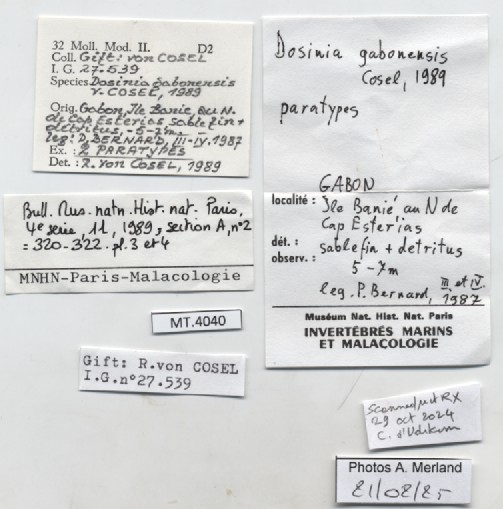 32 Moll. Mod. II. D2
Coll. Gift: von COSEL
I. G. 27.539
Species Dosinia gabonensis
v. COSEL, 1989
Orig. Gabon, Ile Banié, au N.
de Cap Esterias sable fin +
detritus, -5-7m
leg. P. BERNARD, III-IV.1987
Ex.: 2 PARATYPES
Det.: R. von COSEL, 1989
Bull. Mus. natn. Hist. nat. Paris,
4e serie, 11, 1989, section A, n°2
= 320-322. pl. 3 et 4
MNHN-Paris-Malacologie
MT.4040
Gift: R.von COSEL
I.G.n°27.539
Dosinia gabonensis
Cosel, 1989
paratypes
GABON
localité : Ile Banié au N de
Cap Esterias
dét. : sable fin + detritus
observ. : 5-7m
leg. P. Bernard, III et IV.
1987
Muséum Nat. Hist. Nat. Paris
INVERTÉBRÉS MARINS
ET MALACOLOGIE
Scanned RX
29 oct 2024
C. d'Udekem
Photos A. Merland
21/02/25